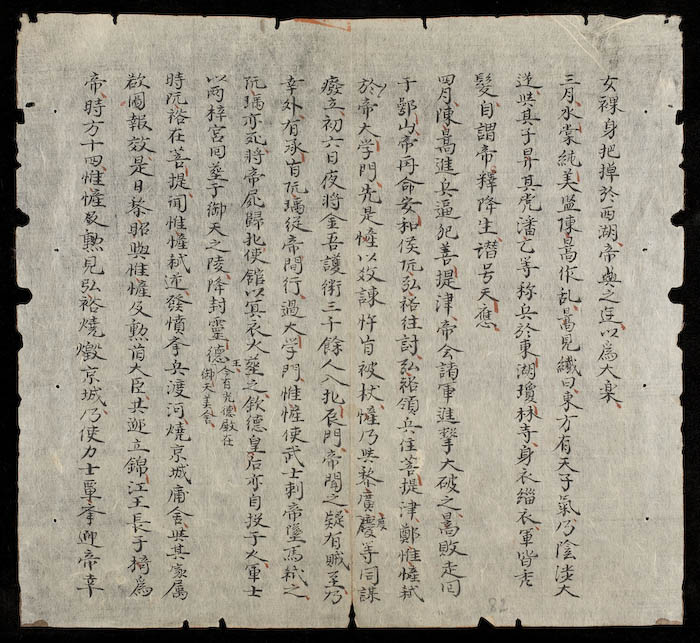 女裸身把掉於西湖帝與之遊以為大樂
三月水棠純美監陳暠作乱暠見䜟曰東方有天子氣乃陰涉大
逆與其子昇其党潘乙等称兵於東湖瓊林寺身衣緇衣軍皆禿
髮自謂帝釋降生僣号天應
四月陳暠進兵逼犯菩提津帝会諸軍進擊大破之暠敗走回
于鄔山帝再命安和侯阮弘裕往討弘裕領兵住菩提津鄭惟㦃弑
於帝大学門先是㦃以数諫忤旨被杖㦃乃與黎廣慶度等同謀
廢立初六日夜將金吾護衛三千餘人入北辰門帝聞之疑有賊至乃
幸外有承旨阮瑀從帝間行過大学門惟㦃使武士刺帝墮馬弑之
阮瑀亦死將帝屍歸北使館以冥衣火葬之欽德皇后亦自投于火軍士
以两梓宮同葬于御天之陵降封靈德王今有光德殿在御天美舍
時阮裕在菩提聞惟㦃弑逆發憤率兵渡河燒京城庸舍與其家属
欲圖報效是日黎昭與惟㦃及勲旧大臣共迎立錦江王長子椅為
帝時方十四惟㦃及勲見弘裕燒燬京城乃使力士單拳迎帝幸
82